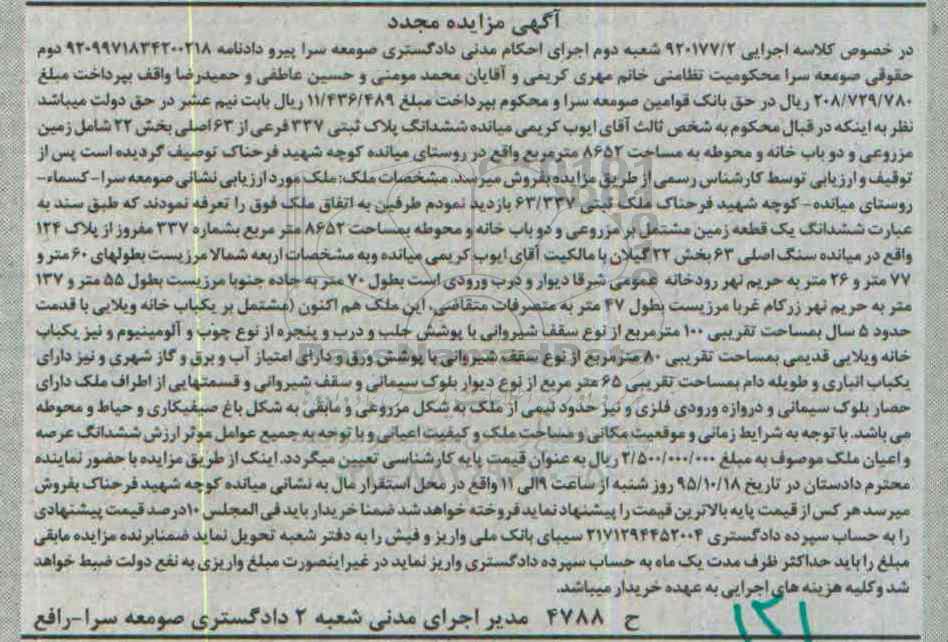 آگهی مزایده مجدد
در خصوص کلاسه اجرایی ۹۲۰۱۷۷/۲ شعبه دوم اجرای احکام مدنی دادگستری صومعه سرا پیرو دادنامه ۹۲۰۹۹۷۱۸۳۴۲۰۰۲۱۸ دوم
حقوقی صومعه سرا محکومیت تظامنی خانم مهری کریمی و آقایان محمد مومنی و حسین عاطفی و حمیدرضا واقف بپرداخت مبلغ
۲۰۸/۷۲۹/۷۸۰ ریال در حق بانک قوامین صومعه سرا و محکوم بپرداخت مبلغ ۱۱/۴۳۶/۴۸۹ ریال بابت نیم عشر در حق دولت میباشد
نظر به اینکه در قبال محکوم به شخص ثالث آقای ایوب کریمی میانده ششدانگ پلاک ثبتی ۳۳۷ فرعی از ۶۳ اصلی بخش ۲۲ شامل زمین
مزروعی و دو باب خانه و محوطه به مساحت ۸۶۵۲ مترمربع واقع در روستای میانده کوچه شهید فرحناک توصیف گردیده است پس از
توقیف و ارزیابی توسط کارشناس رسمی از طریق مزایده بفروش میرسد. مشخصات ملک: ملک مورد ارزیابی نشانی صومعه سرا - کسماء-
روستای میانده - کوچه شهید فرحناک ملک ثبتی ۶۳/۳۳۷ بازدید نمودم طرفین به اتفاق ملک فوق را تعرفه نمودند که طبق سند به
عبارت ششدانگ یک قطعه زمین مشتمل بر مزروعی و دو باب خانه و محوطه بمساحت ۸۶۵۲ متر مربع بشماره ۳۳۷ مفروز از پلاک ۱۲۴
واقع در میانده سنگ اصلی ۶۳ بخش ۲۲ گیلان با مالکیت آقای ایوب کریمی میانده وبه مشخصات اربعه شمالا مرزیست بطولهای ۶۰ متر و
۷۷ متر و ۲۶ متر به حریم نهر رودخانه عمومی شرقا دیوار و درب ورودی است بطول ۷۰ متر به جاده جنوبا مرزیست بطول ۵۵ متر و ۱۳۷
متر به حریم نهر زرکام غربا مرزیست بطول ۴۷ متر به متصرفات متقاضی، این ملک هم اکنون (مشتمل بر یکباب خانه ویلایی با قدمت
حدود ۵ سال بمساحت تقریبی ۱۰۰ مترمربع از نوع سقف شیروانی با پوشش حلب و درب و پنجره از نوع چوب و آلومینیوم و نیز یکباب
خانه ویلایی قدیمی بمساحت تقریبی ۸۰ مترمربع از نوع سقف شیروانی با پوشش ورق و دارای امتیاز آب و برق و گاز شهری و نیز دارای
یکباب انباری و طویله دام بمساحت تقریبی ۶۵ متر مربع از نوع دیوار بلوک سیمانی و سقف شیروانی و قسمتهایی از اطراف ملک دارای
حصار بلوک سیمانی و دروازه ورودی فلزی و نیز حدود نیمی از ملک به شکل مزروعی و مابقی به شکل باغ صیفیکاری و حیاط و محوطه
می باشد. با توجه به شرایط زمانی و موقعیت مکانی و مساحت ملک و کیفیت اعیانی و با توجه به جمیع عوامل موثر ارزش ششدانگ عرصه
و اعیان ملک موصوف به مبلغ ۲/۵۰۰/۰۰۰/۰۰۰ ریال به عنوان قیمت پایه کارشناسی تعیین میگردد. اینک از طریق مزایده با حضور نماینده
محترم دادستان در تاریخ ۹۵/۱۰/۱۸ روز شنبه از ساعت ۹ الی ۱۱ واقع در محل استقرار مال به نشانی میانده کوچه شهید فرحناک بفروش
میرسد هر کس از قیمت پایه بالاترین قیمت را پیشنهاد نماید فروخته خواهد شد ضمنا خریدار باید فی المجلس ۱۰درصد قیمت پیشنهادی
را به حساب سپرده دادگستری ۲۱۷۱۲۹۴۴۵۲۰۰۴ سیبای بانک ملی واریز و فیش را به دفتر شعبه تحویل نماید ضمنا برنده مزایده مابقی
مبلغ را باید حداکثر ظرف مدت یک ماه به حساب سپرده دادگستری واریز نماید در غیر اینصورت مبلغ واریزی به نفع دولت ضبط خواهد
شد و کلیه هزینه های اجرایی به عهده خریدار میباشد.
ح ۴۷۸۸ مدیر اجرای مدنی شعبه ۲ دادگستری صومعه سرا-رافع
۱۲۱